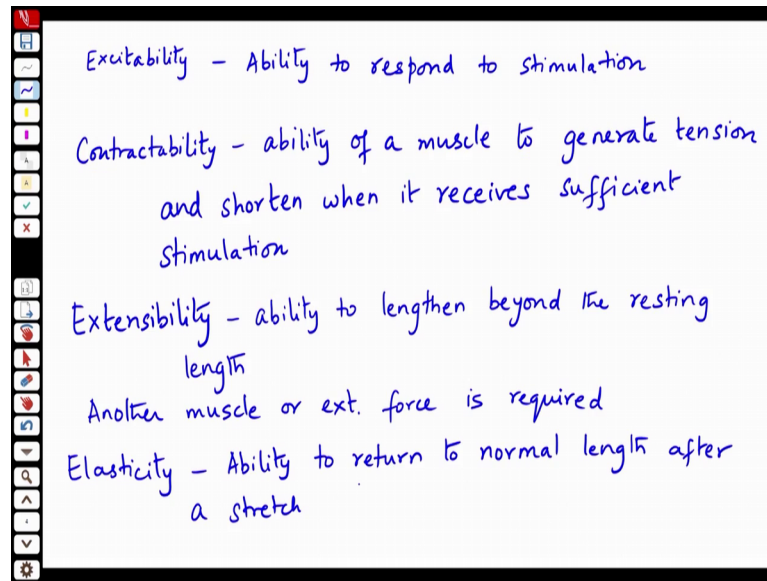 Excitability - Ability to respond to stimulation
Contractability - ability of a muscle to generate tension
and shorten when it receives sufficient
stimulation
Extensibility - ability to lengthen beyond the resting
length
Another muscle or ext. force is required
Elasticity - Ability to return to normal length after
a stretch